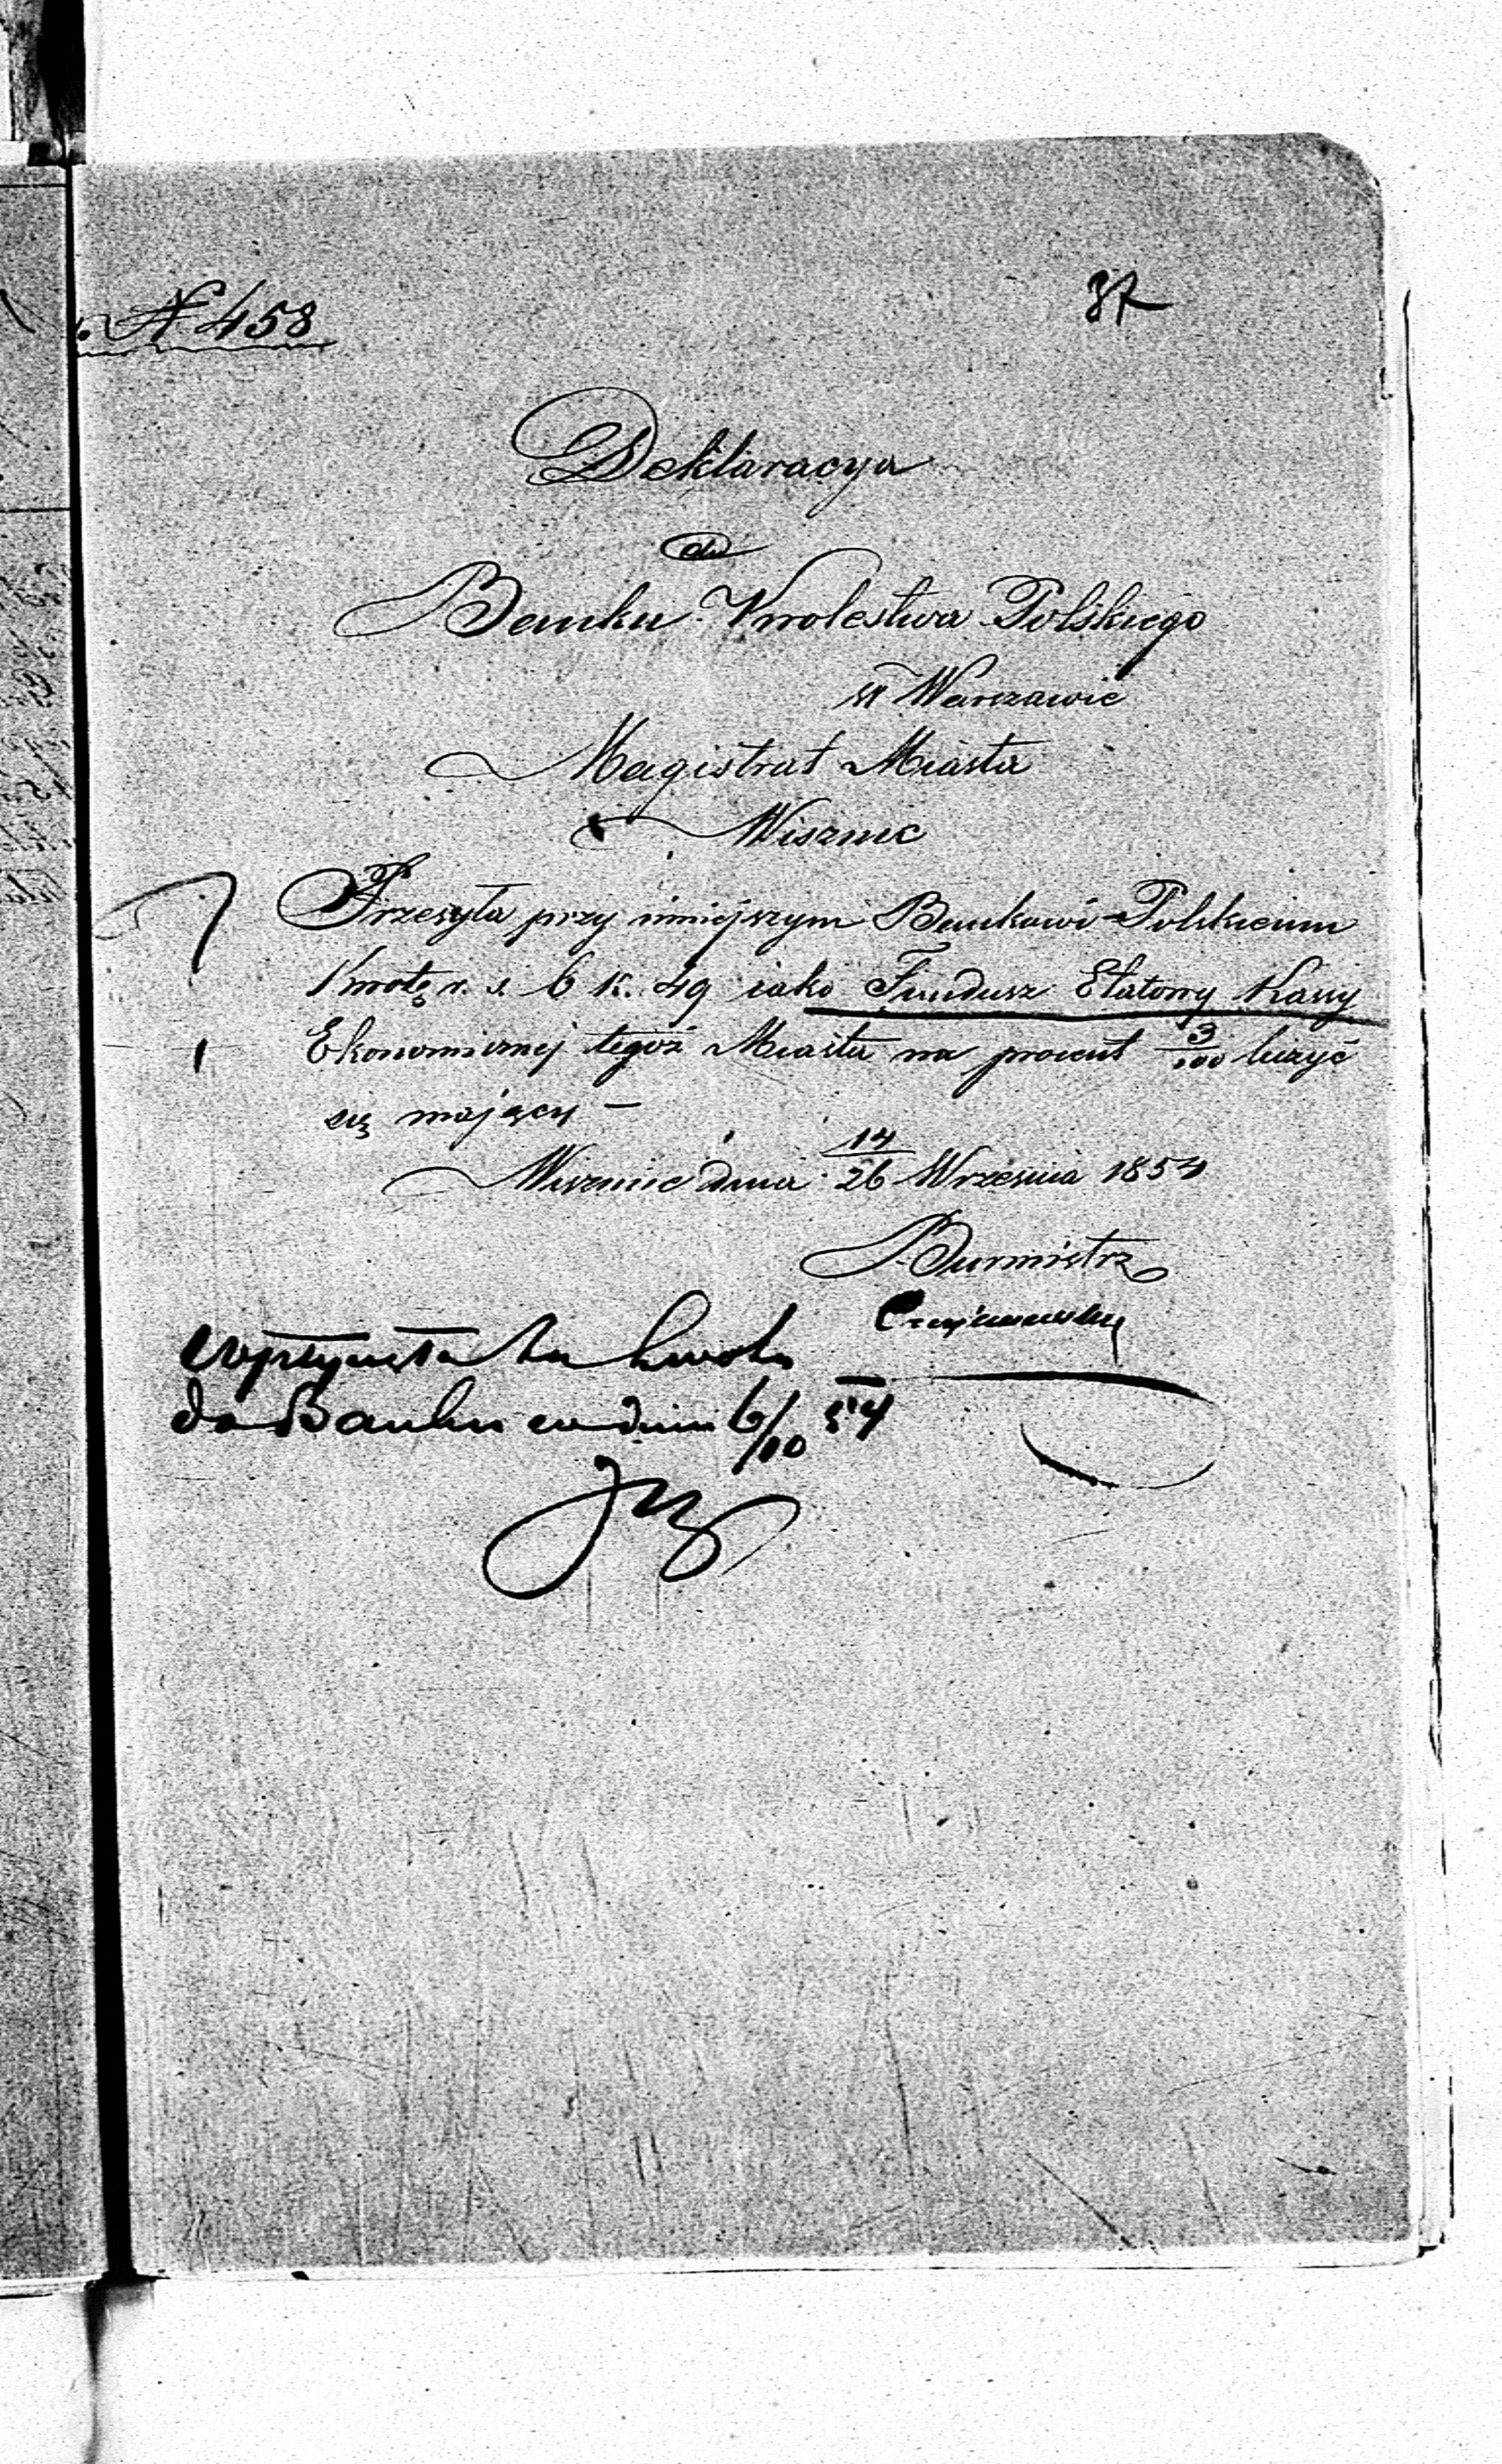 N 458
37
Deklaracya
do
Banku Krolestwa Polskiego
w Warszawie
Magistrat Miasta
Wisznic
Przesyła przy niniejszym Bankowi Polskiemu
Kwotę r. s. 6 k. 49 iako Fundusz Etatowy Kassy
Ekonomicznej tegoż Miasta na procent 3/100 liczyć
się mający –
Wisznic dnia 14/26 Września 1854
Burmistrz
wpłynęła ta kwota
do Banku w dniu 6/10 54